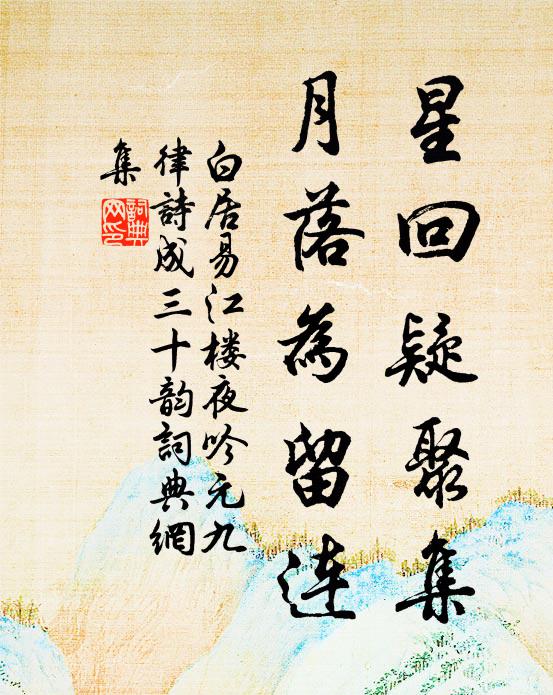 星回疑聚集
月落為留連
白居易江楼夜吟元九
律詩成三十韵詞典網
集
詞典網印